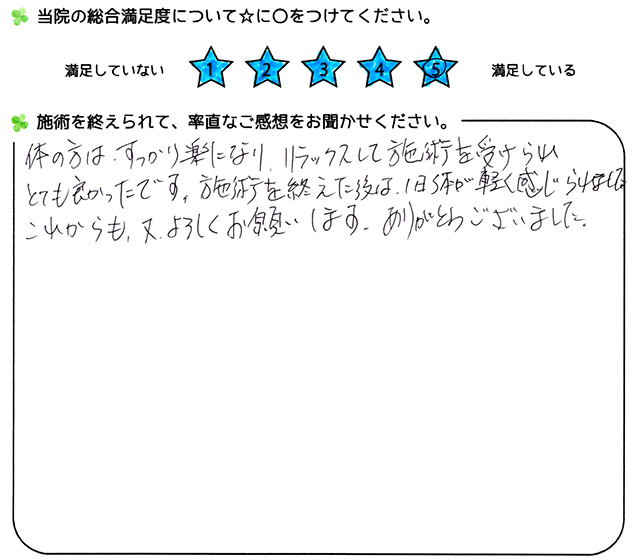 当院の総合満足度について☆に○をつけてください。
満足していない 1 2 3 4 5 満足している
施術を終えられて、率直なご感想をお聞かせください。
体の方は、すっかり楽になり、リラックスして施術を受けられ
とても良かったです。施術を終えた後は、1日体が軽く感じられました。
これからも、又、よろしくお願いします。ありがとうございました。